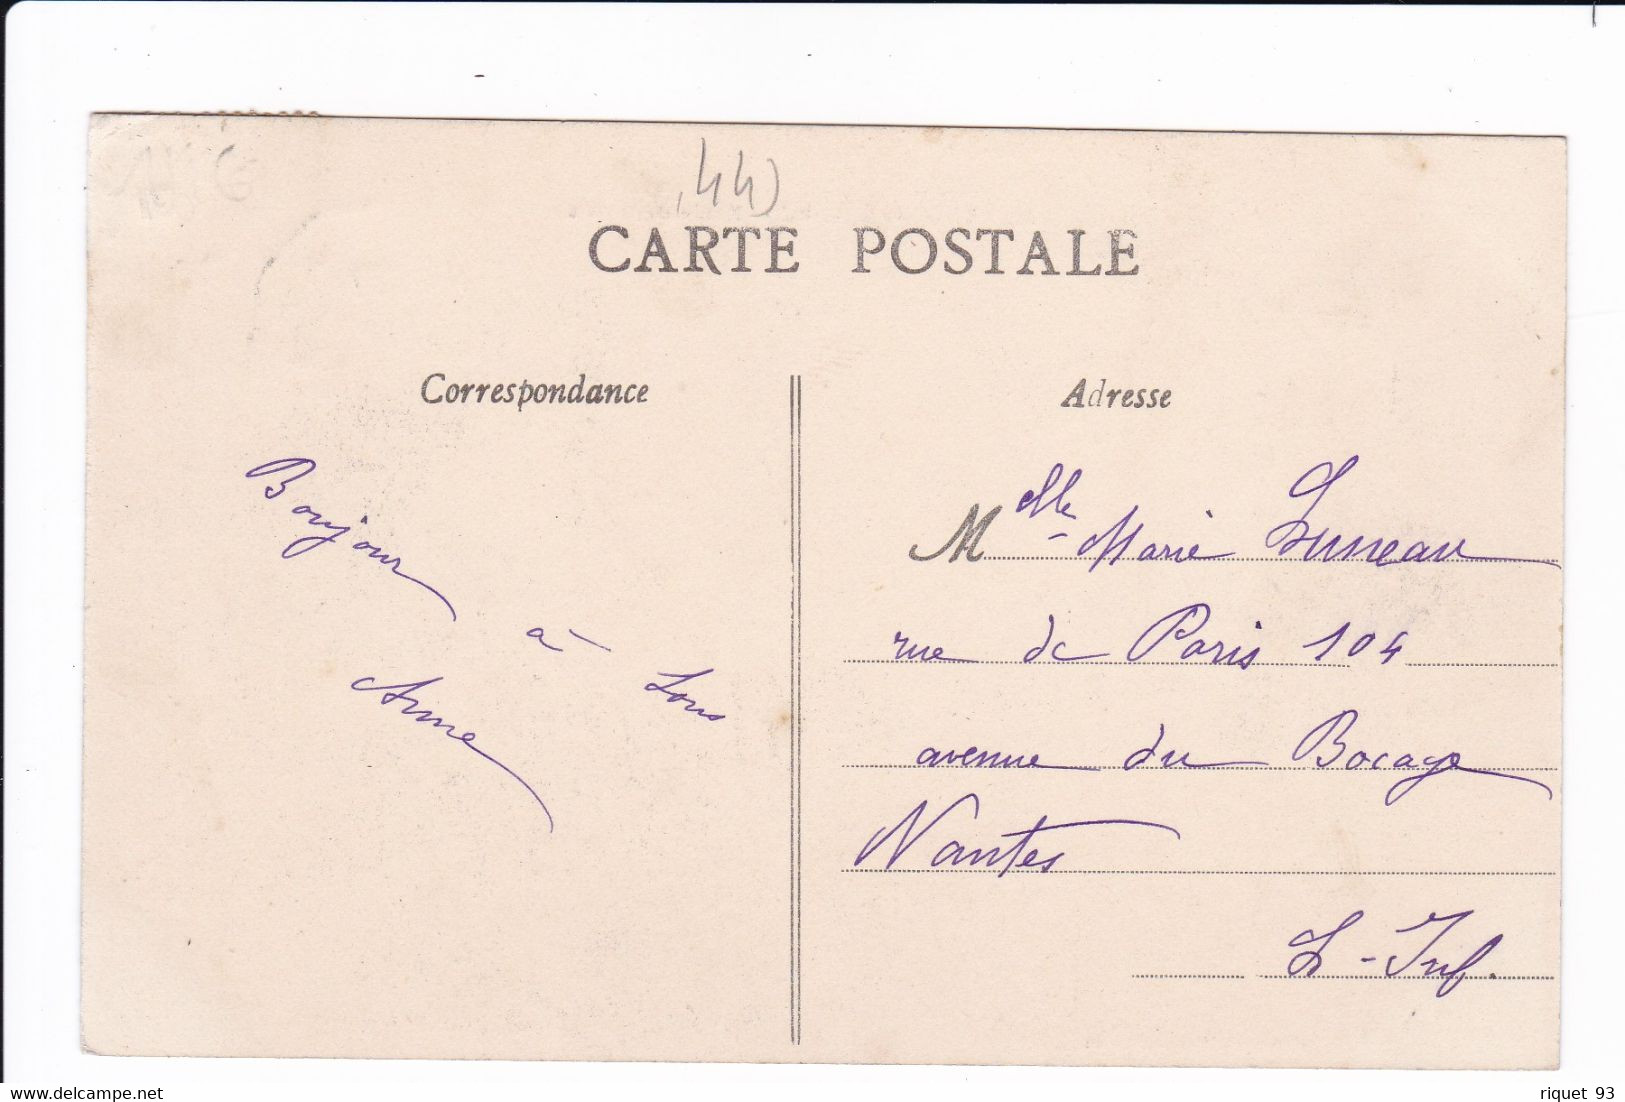 44)
CARTE POSTALE
Correspondance
Adresse
Bonjour à tous
Anne
Melle Marie Luneau
rue de Paris 104
avenue du Bocage
Nantes
L-Inf.
riquet 93